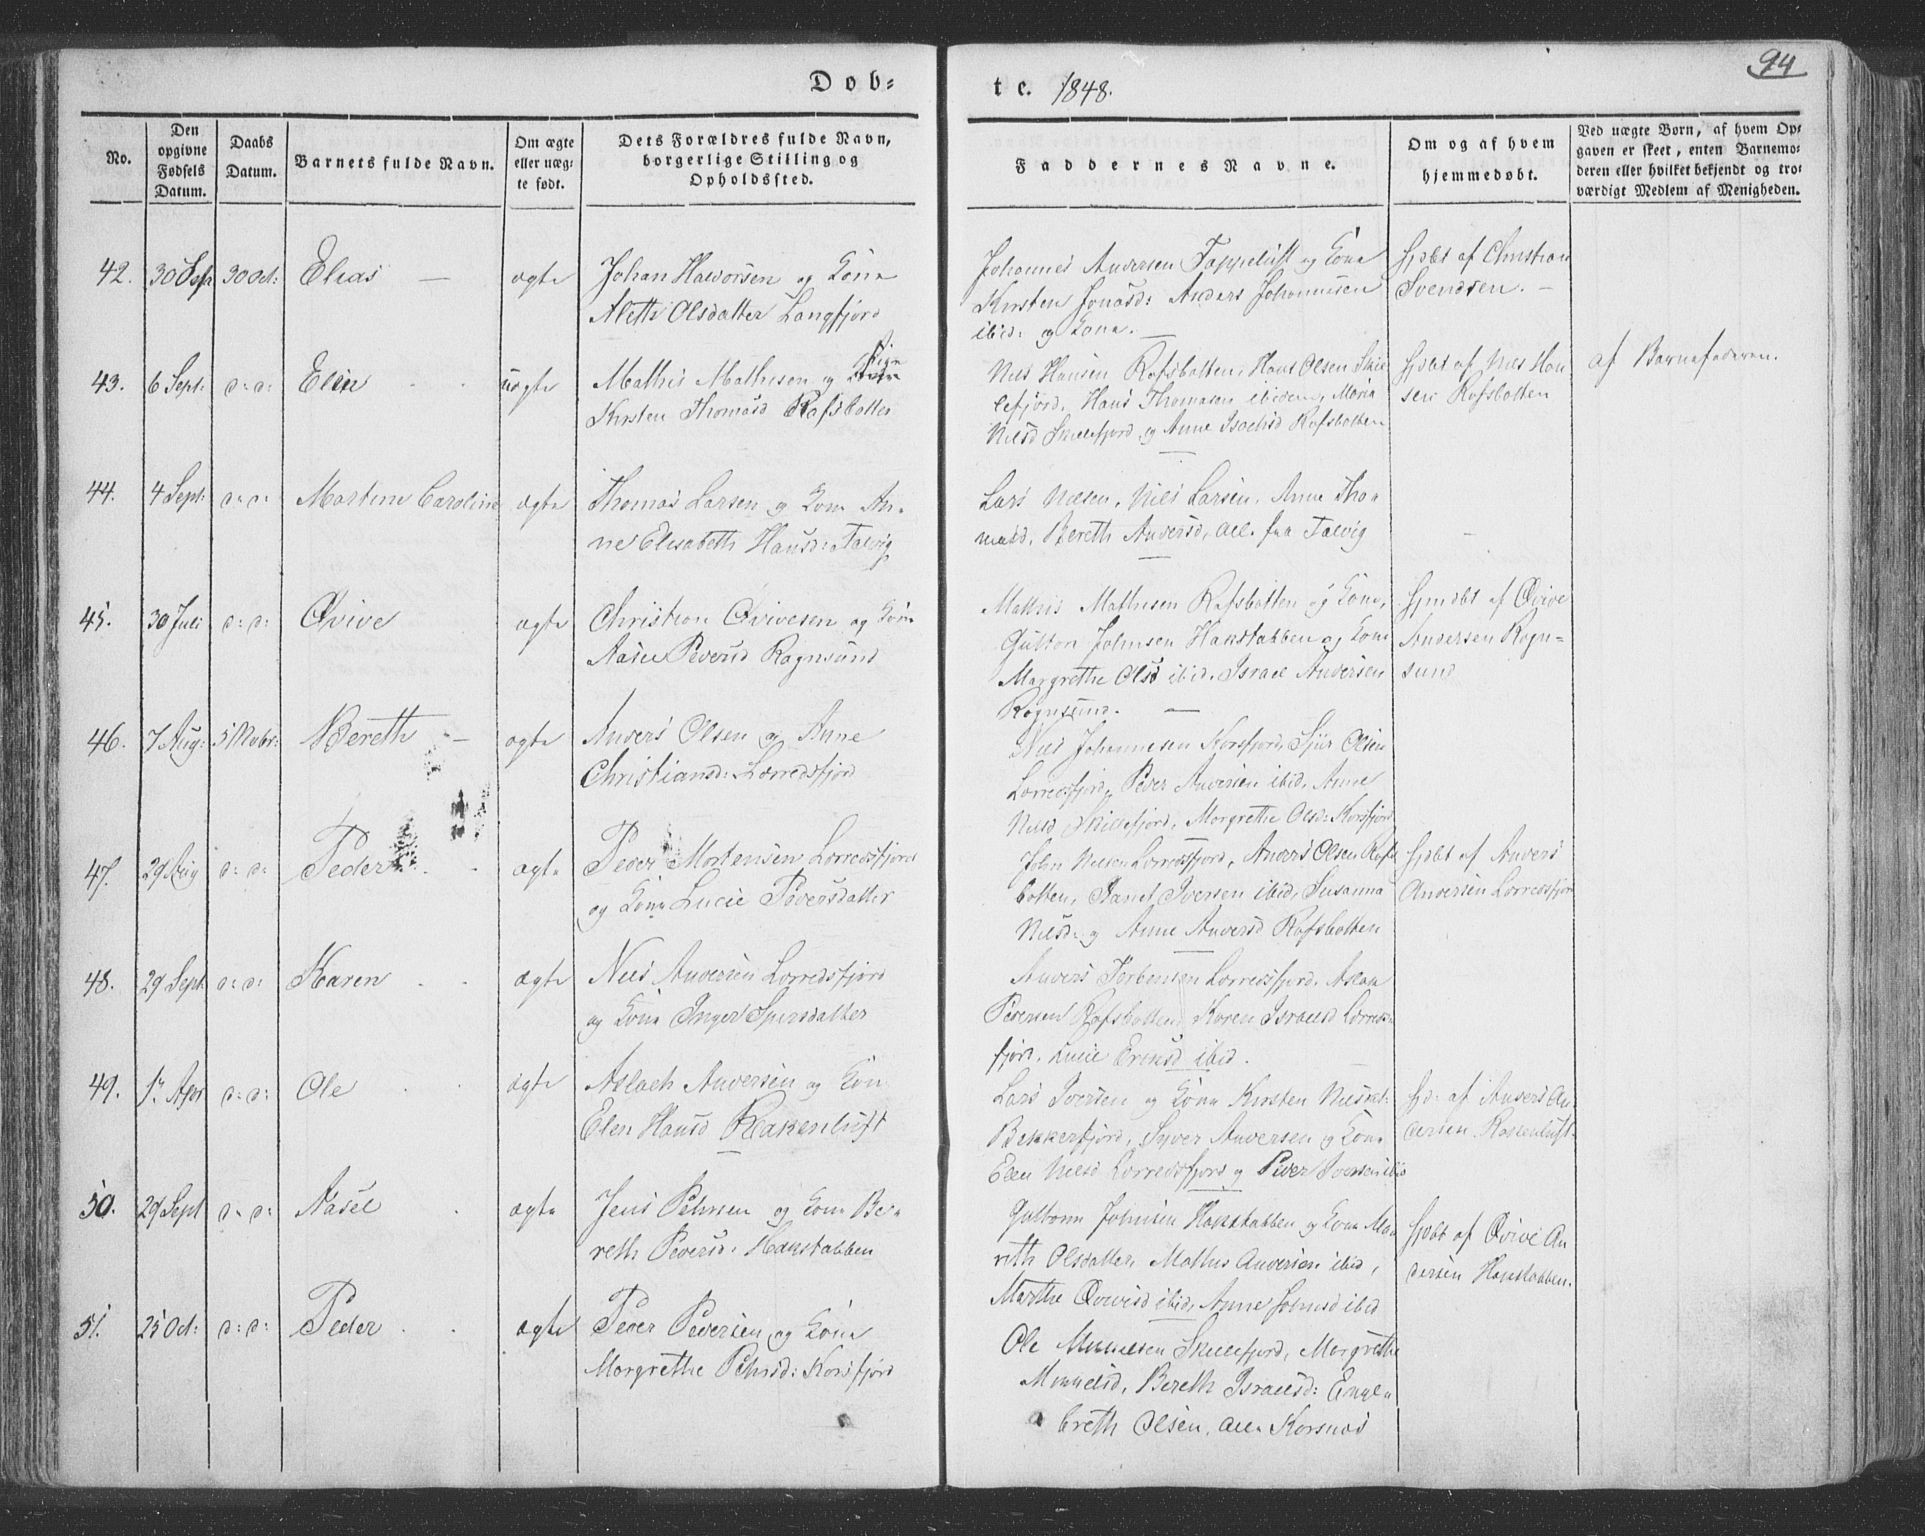 94
Døb-
te. 1848.
No.
Den opgivne Fødsels Datum.
Daabs Datum.
Barnets fulde Navn.
Om ægte eller uæg-te født.
Dets Forældres fulde Navn, borgerlige Stilling og Opholdssted.
Faddernes Navne.
Om og af hvem hjemmedøbt.
Ved uægte Børn, af hvem Op-
gaven er skeet, enten Barnemo-
deren eller hvilket bekjendt og tro-
værdigt Medlem af Menigheden.
42. 30 Sep 30 Oct: Elias — ægte
Johan Halvorsen og Kona
Aleth Olsdatter Langfjord
Johannes Andersen Tappeluft og Kona
Kirsten Jonasd: Anders Johannesen
ibid: og Kona. —
hjdbt af Christian
Svendsen. —
43. 6 Sept: d: d: Elen uægte
Mathis Mathisen og Pigen
Kirsten Thomasd Rafsbotten
Niels Hansen Rafsbotten, Hans Olsen Skil
lefjord, Hans Thomasen ibidem, Maria
Nilsd Skillefjord, og Anne Isachsd Rafsbotten
hjdbt af Niels Han
sen Rafsbotten
af Barnefaderen.
44. 4 Sept: d: d: Martine Caroline ægte
Thomas Larsen og Kona An-
ne Elisabeth Hansd: Talvig
Lars Nilsen, Niels Larsen, Anne Tho
masd, Bereth Andersd, alle fra Talvig
45. 30 Juli d: d: Qvive ægte
Christian Qvivesen og Kona
Aasel Pedersd Rognsund
Mathis Mathisen Rafsbotten og Kona,
Gulbon Johnsen Hakstabben og Kona
Margrethe Olsd ibid. Israel Andersen
Rognsund. —
hjmdbt af Qvive
Andersen Rogn-
sund
46. 7 Aug: 5 Novbr: Bereth — ægte
Anders Olsen og Anne
Christiansd: Lerredsfjord
Niels Johannesen Korsfjord, Sjur Olsen
Lerredsfjord, Peder Andersen ibid, Anne
Nilsd Skillefjord, Margrethe Olsd: Korsfjord
47. 29 Aug d: d: Peder ægte
Peder Mortensen Lerredsfjord
og Kona Lucie Pedersdatter
John Nilsen Lerredsfjord, Anders Olsen Rafs
botten, Daniel Iversen ibid, Susanna
Nilsd: og Anne Andersd Rafsbotten
hjdbt af Anders
Andersen Lerredsfjor
48. 29 Sept d: d: Karen ægte
Niels Andersen Lerredsfjord
og Kona Inger Sjursdatter
Anders Torbensen Lerredsfjord, Aslak
Pedersen Rafsbotten, Karen Israelsd Lerreds
fjord, Lucie Eriksd ibid.
49. 1. Apr d: d: Ole ægte
Aslach Andersen og Kon
Elen Hansd Rakkenluft
Lars Iversen og Kona Kirsten Nilsdt:
Bekkerfjord, Syver Andersen og Kona
Elen Nilsd Lerredsfjord og Peder Iversen ibid
hjd: af Anders An
dersen Rakkenluft.
50. 29 Sept d: d: Aasel ægte
Jens Pehrsen og Kona Be-
reth Pedersd: Hakstabben
Gulbonn Johnsen Hakstabben og Kona Ma
reth Olsdatter, Mathis Andersen ibid,
Marthe Qvivisd ibid, Anne Johnsd ibid
hjdbt af Qvive An
dersen Hakstabben.
51. 25 Oct: d: d: Peder ægte
Peder Pedersen og Kona
Margrethe Pehrsd: Korsfjord
Ole Mikkelsen Skillefjord, Margrethe
Mikkelsd, Bereth Israelsd: Engel
breth Olsen, alle Korsnæs